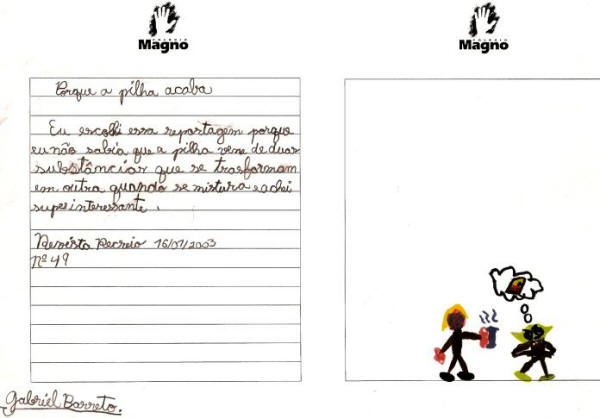 COLÉGIO
Magno
COLÉGIO
Magno
Porque a pilha acaba
Eu escolhi essa reportagem porque
eu não sabia que a pilha vene de duas
substâncias que se trasformam
em outra quando se mistura e achei
super interessante.
Revista Recreio 16/01/2003
Nº 49
Gabriel Barreto.